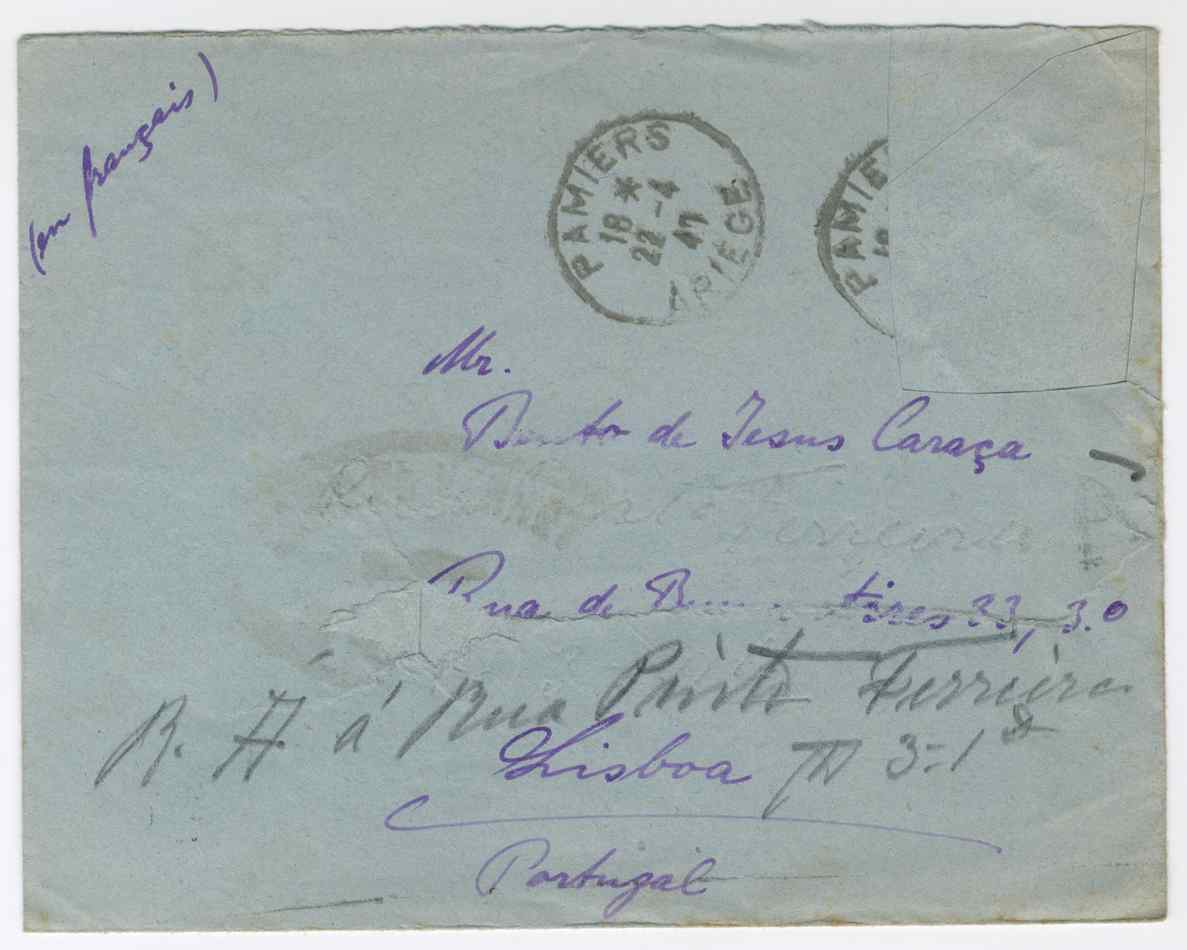 (en français)
PAMIERS
18 *
22 - 4
47
ARIÈGE
PAMIE
18
Mr.
Bento de Jesus Caraça
Ferreira
Rua de Buenos Aires 33, 3.º
R. A á Rua Pinto Ferreira
Lisboa 3=1º
Portugal